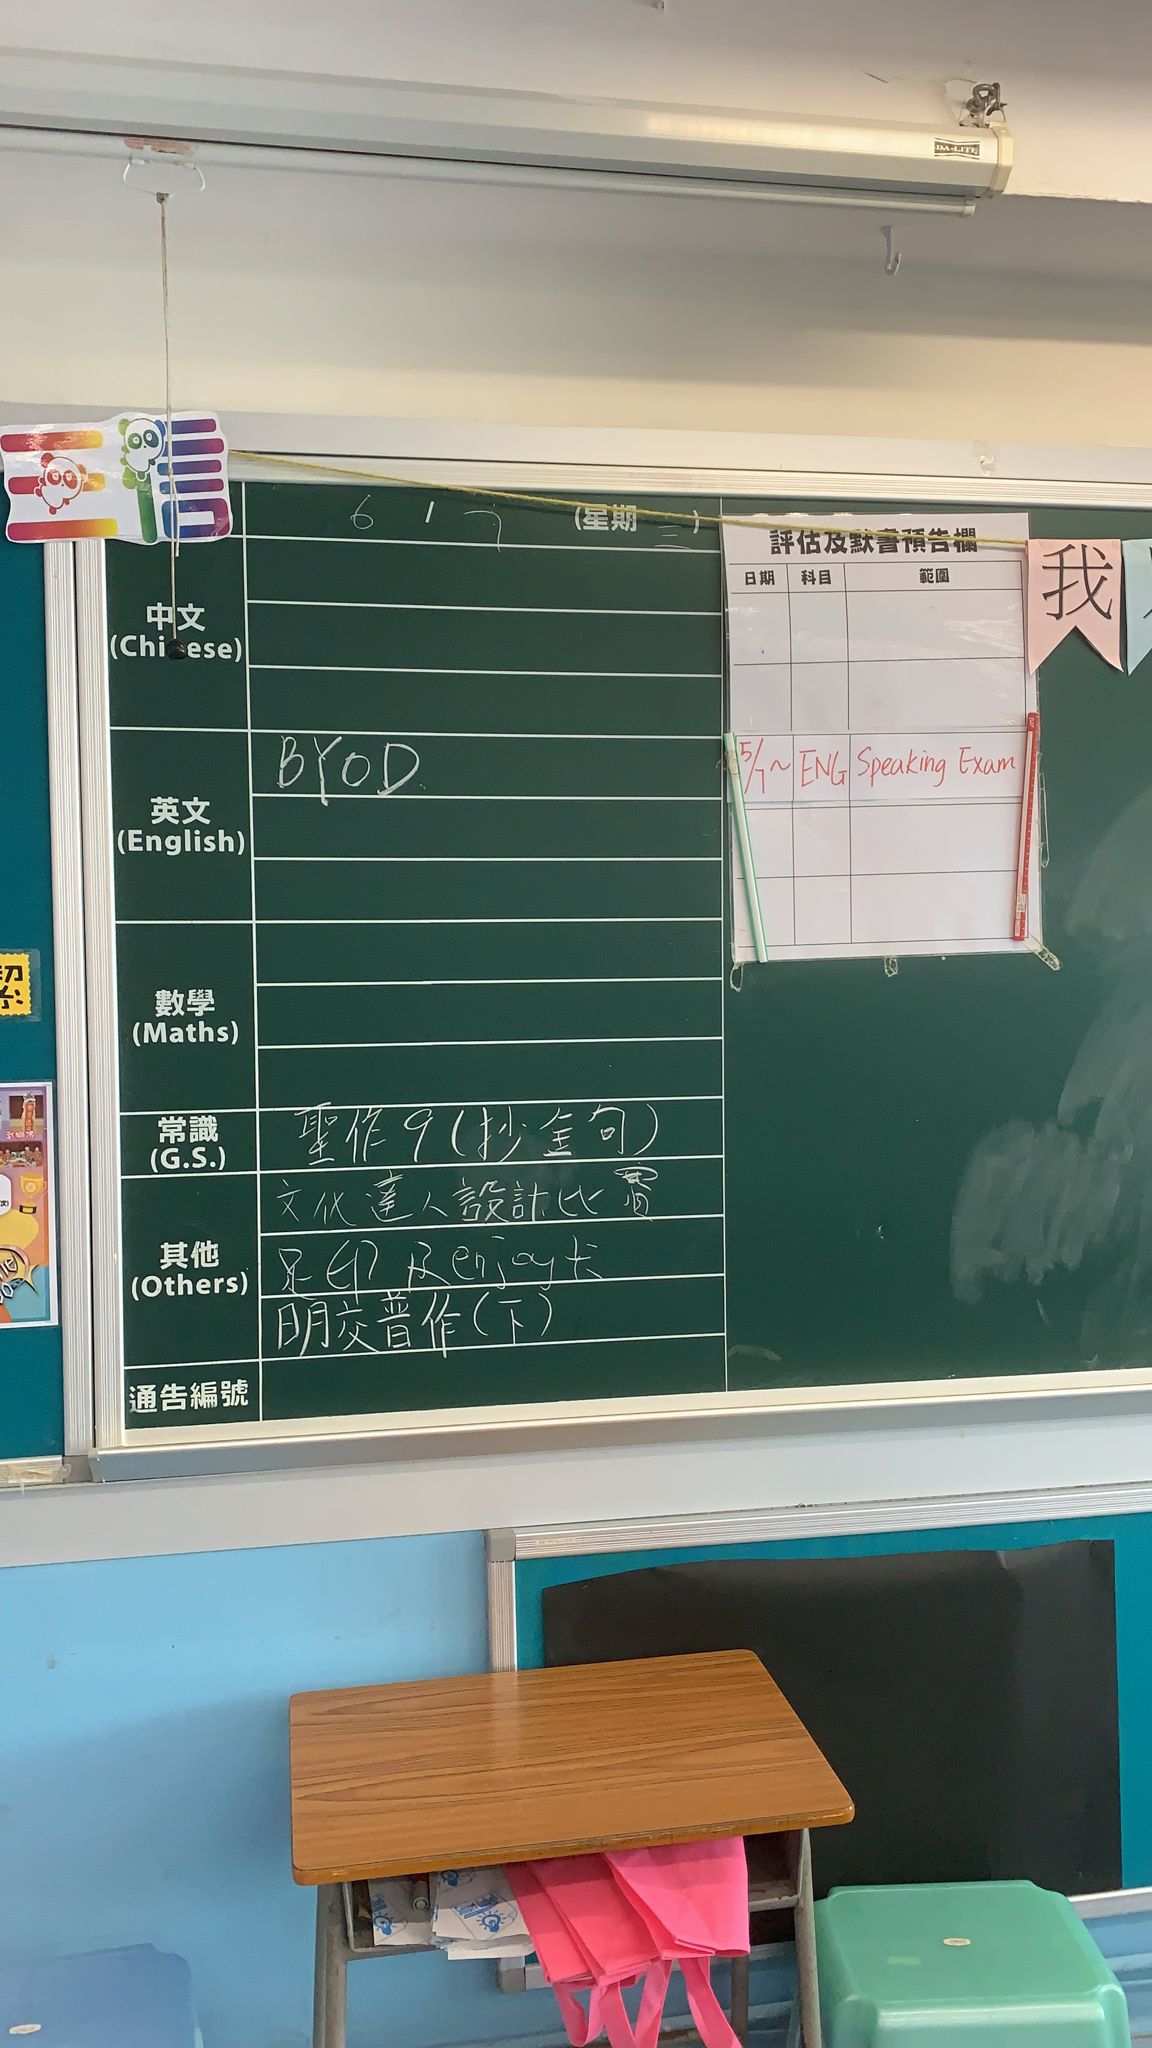 DA-LITE
(星期三)
中文
(Chinese)
英文
(English)
BYOD
數學
(Maths)
常識
(G.S.)
聖作9(抄金句)
其他
(Others)
文化達人設計比賽
足印及enjoy卡
明交普作(下)
通告編號
評估及默書預告欄
日期 科目 範圍
5/1~ ENG Speaking Exam
我